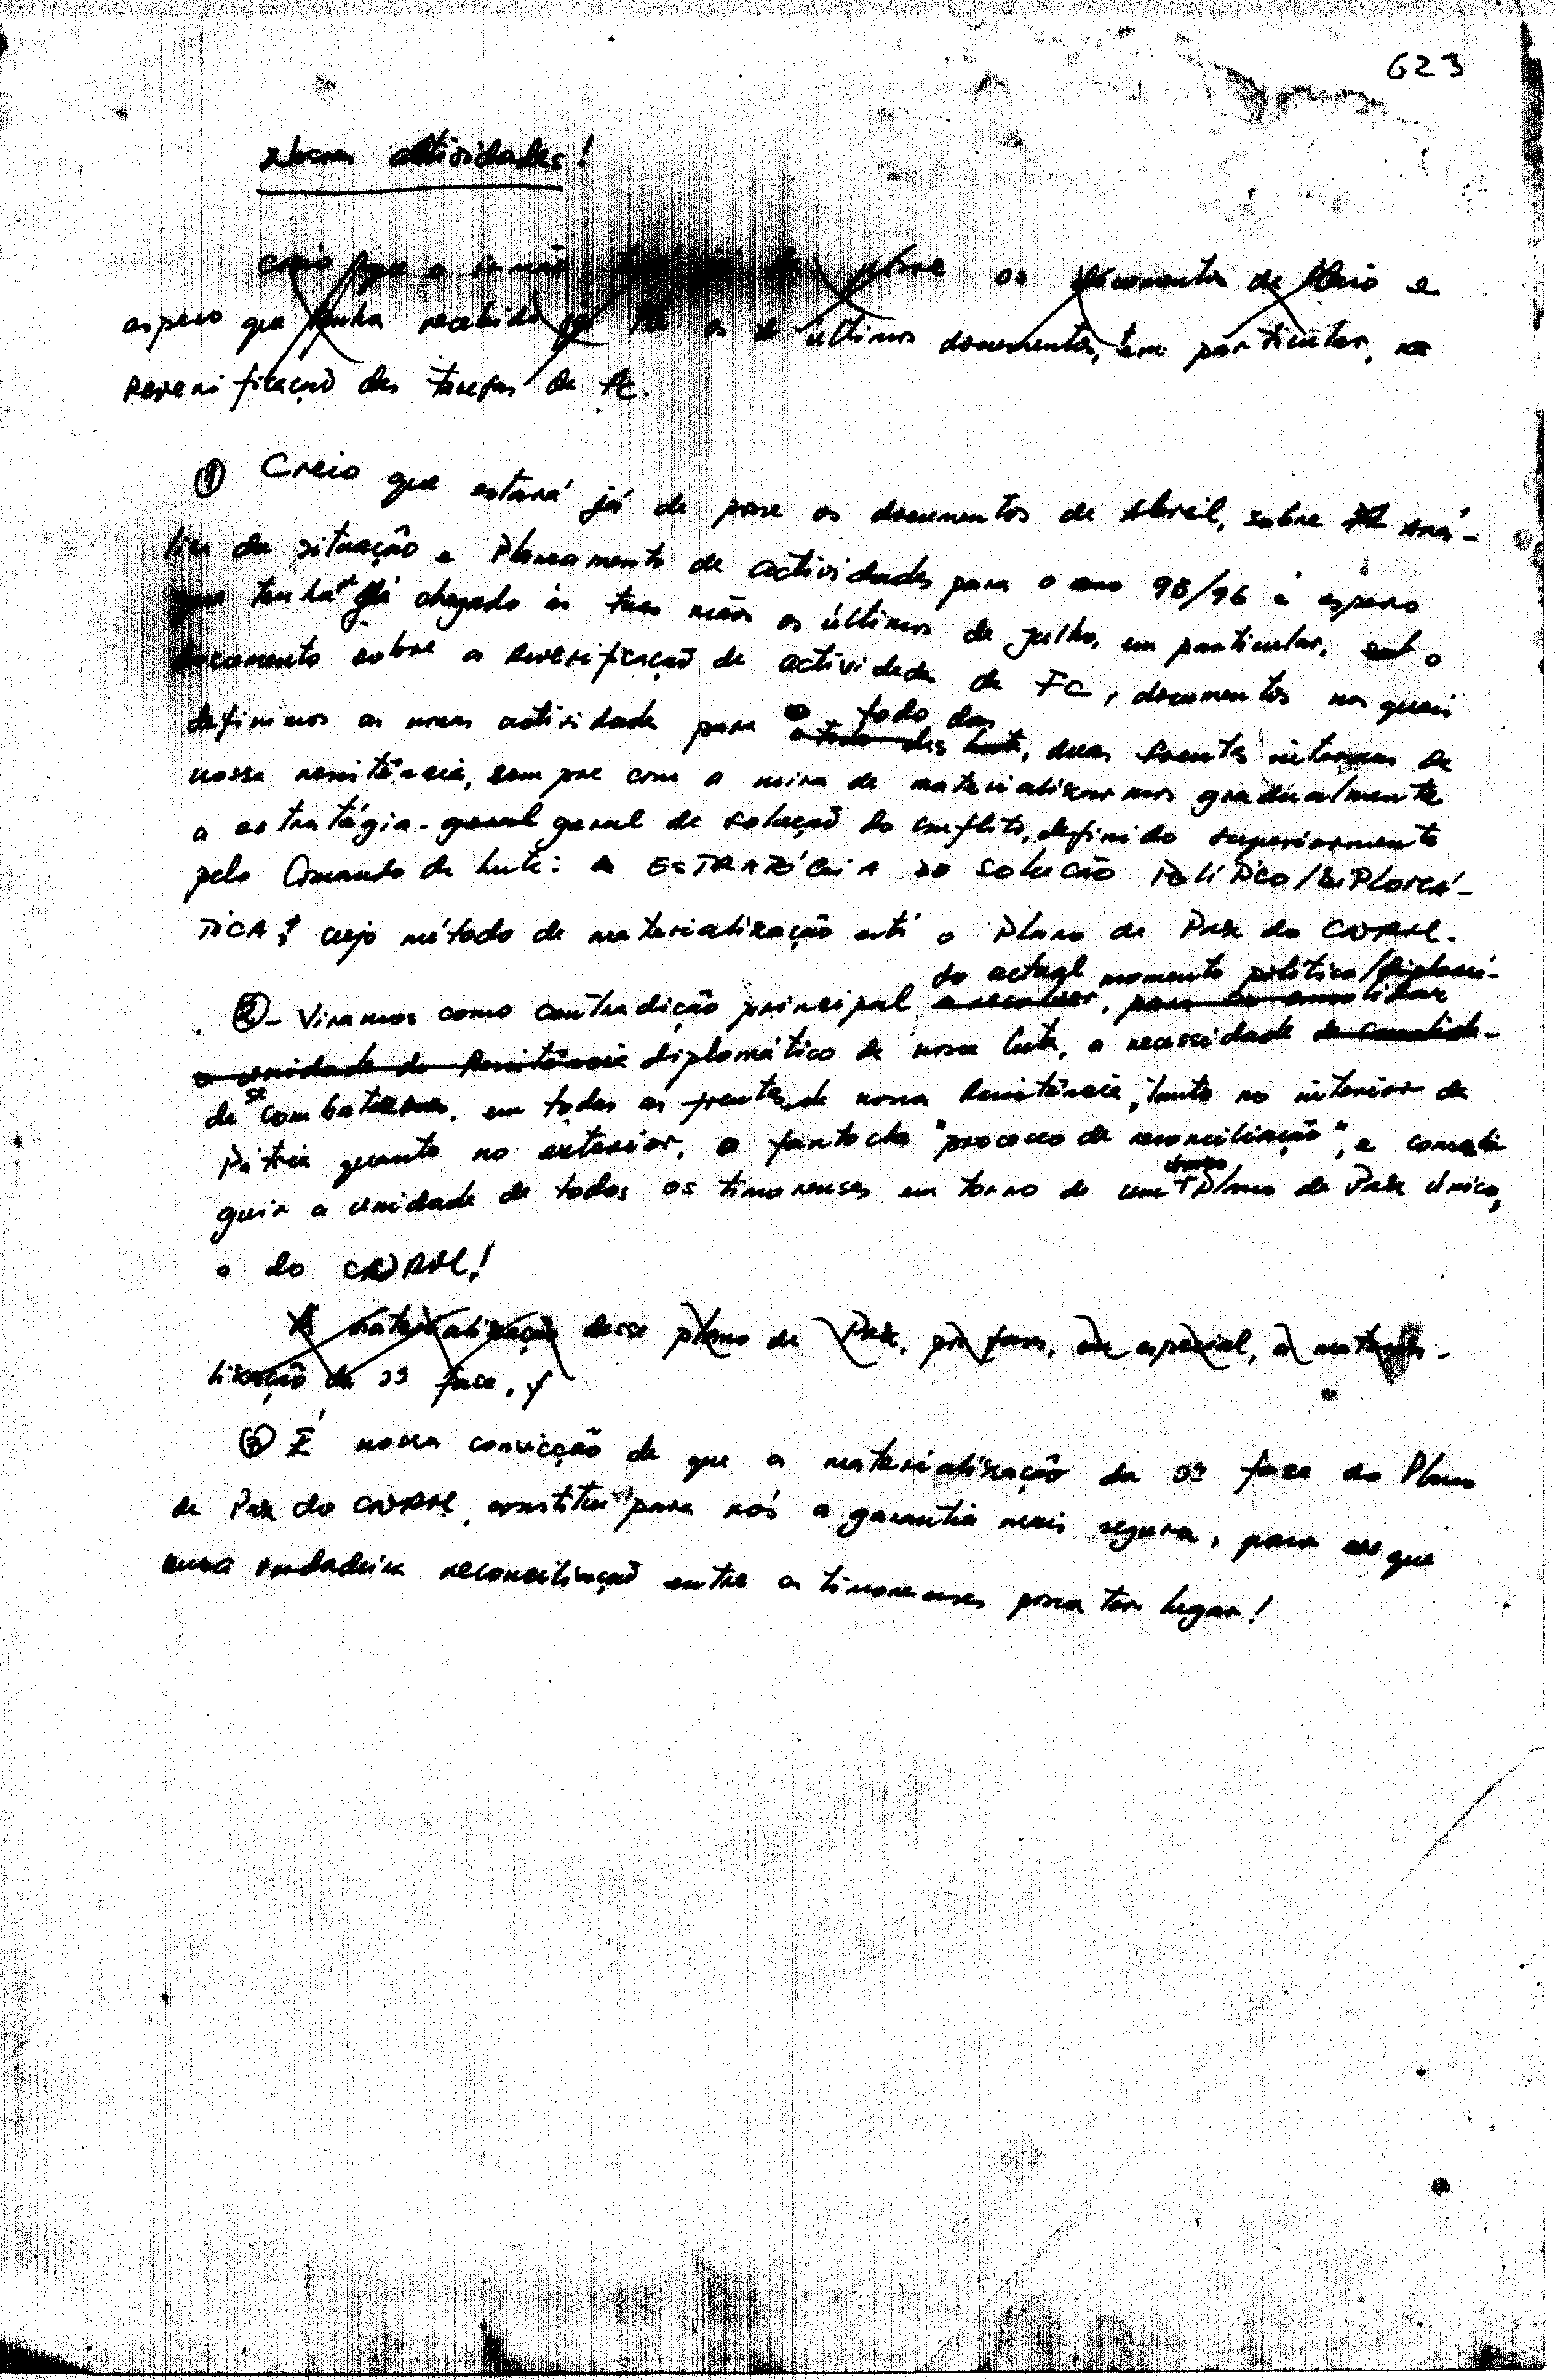 623
actividades!
Creio que o irmão os documentos de Maio e
espero que tenha recebido já os últimos documentos, em particular, a
reverificação das tarefas da FC.
① Creio que estará já de posse os documentos de Abril, sobre Aná-
lise da situação e Planeamento de actividades para o ano 95/96 e espero
que tenha já chegado às tuas mãos os últimos de julho, em particular, o
documento sobre a reverificação de actividades da FC, documentos nos quais
definimos as novas actividades para o todo das
a todo das luta, duas frentes internas da
nossa resistência, sempre com a mira de materializarmos gradualmente
a estratégia geral geral de solução do conflito, definido superiormente
pelo Comando da Luta: A ESTRATÉGIA DO SOLUÇÃO POLÍTICO/DIPLOMÁ-
TICA! cujo método de materialização está o Plano de Paz do CNRM.
do actual momento político/diplomá-
②- Viramos como contradição principal a resolver, para consolidar
a unidade da Resistência diplomático da nossa luta, a necessidade de consolida-
de se combater, em todas as frentes da nossa Resistência, tanto no interior da
Pátria quanto no exterior, o fantoche "processo de reconciliação", e conse
guir a unidade de todos os timorenses em torno de um Plano de Paz único,
o do CNRM!
A materialização desse plano de Paz, por fases, em especial, a materia-
lização da 2ª fase, y
③ É nossa convicção de que a materialização da 2ª fase do Plano
de Paz do CNRM, constitui para nós a garantia mais segura, para que
uma verdadeira reconciliação entre os timorenses possa ter lugar!